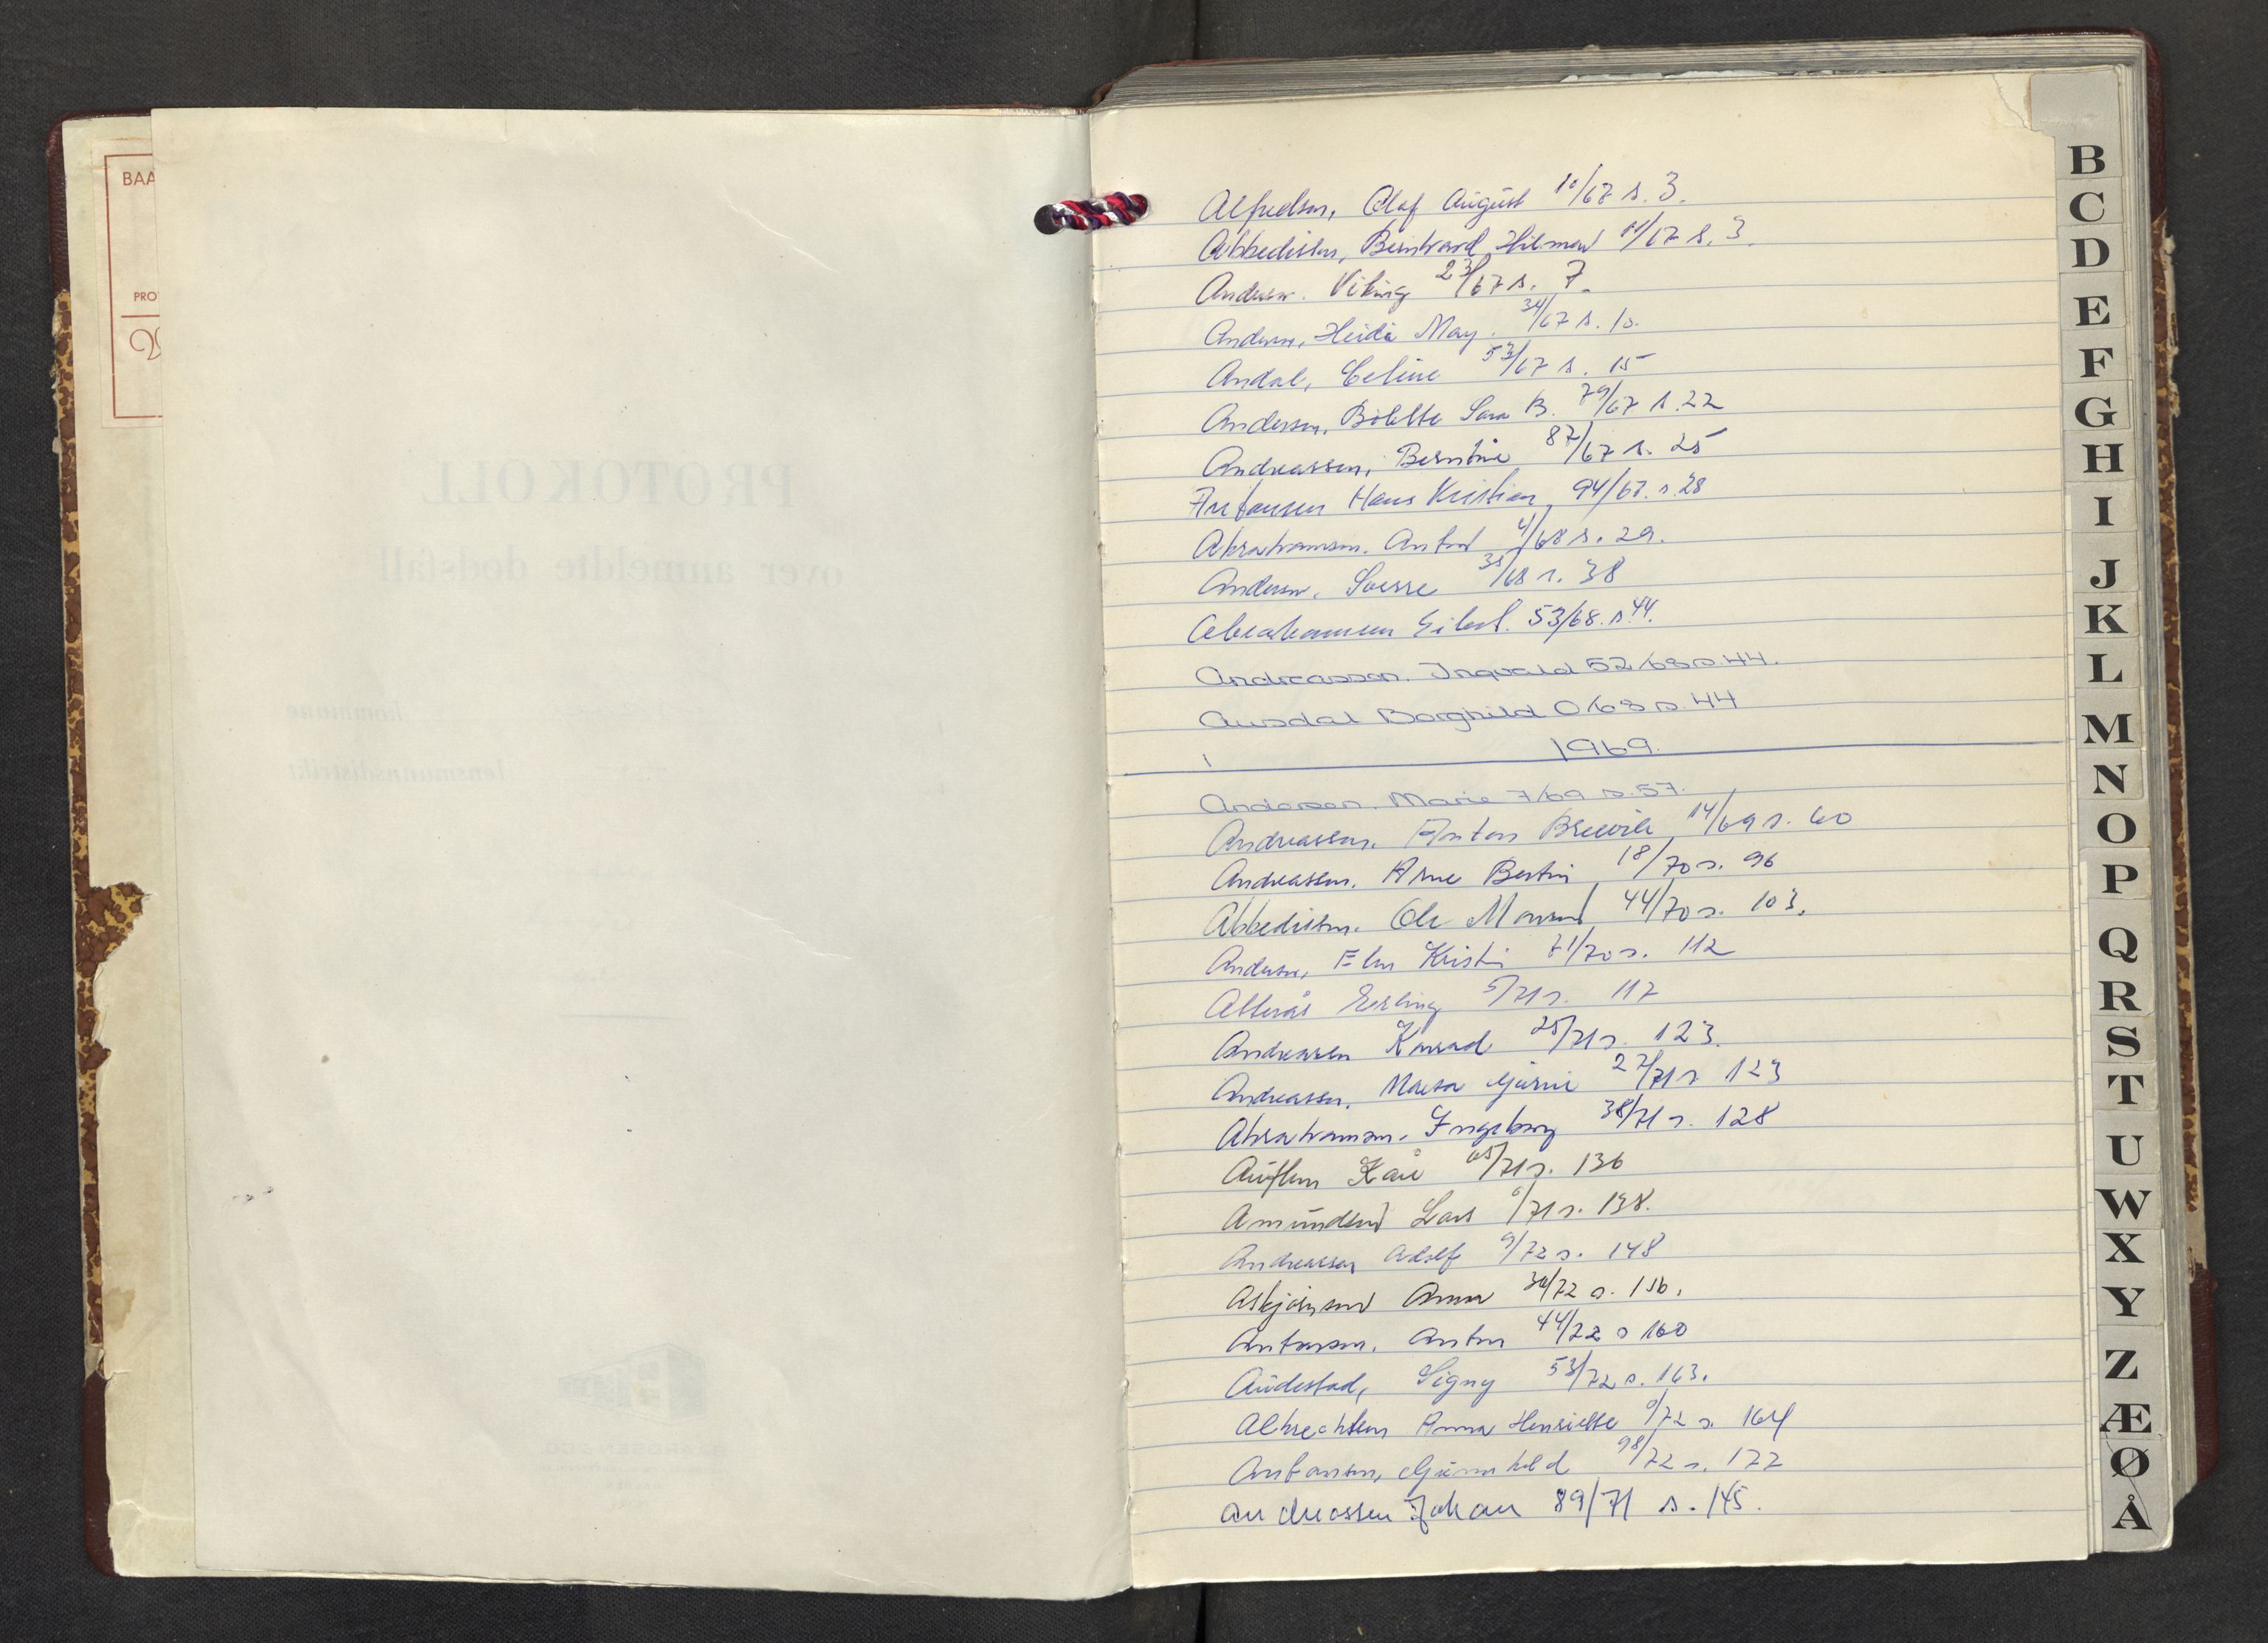 BAA
PRO
PROTOKOLL
over anmeldte dødsfall
kommune
lensmannsdistrikt
Alfredsen, Olaf August 10/67 s. 3.
Abbedissen, Berntvard Hilmar /67 s. 3
Andersen. Viking 23/67 s. 7.
Andersen, Heidi May. 34/67 s. 10.
Andal, Celine 53/67 s. 15
Andersen, Bolette Sara B. 79/67 s. 22
Andreassen, Berntine 87/67 s. 25
Antonsen Hans Kristian 94/67. s. 28
Abrahamsen. Anton 4/68 s. 29.
Andersen, Sverre /68 s. 38
Abrahamsen 53/68. s. 44.
Andreassen. Ingvald 52/68 s. 44.
Ausdal Borghild 0/68 s. 44
1969.
Andersen. Marie 7/69 s. 57.
Andreassen. Anton 14/69 s. 60
Andreassen. Arne Bertin 18/70 s. 96
Abbedissen. Ole 44/70 s. 103.
Andersen, Elen Kristi 71/70 s. 112
Erling 5/71 s. 117
Andreasen Konrad 25/71 s. 123.
Andreassen. Gurine 27/71 s. 123
Abrahamsen. Ingeborg 38/71 s. 128
Kåre 65/71 s. 136
Amundsen Lars 0/71 s. 138.
Andreassen Adolf 9/72 s. 148
Askjørnsen Anna /72 s. 156.
Antonsen. Anton 44/72 s 160
Audestad, Signy 53/72 s. 163.
Albrechtsen Anna Henriette 0/72 s. 164
Antonsen, Gunnhild 98/72 s. 177
Andreassen Johan 89/71 s. 145.
B
C
D
E
F
G
H
I
J
K
L
M
N
O
P
Q
R
S
T
U
W
X
Y
Z
Æ
Ø
Å